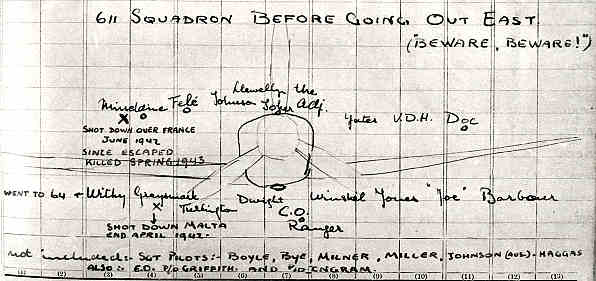 611 SQUADRON BEFORE GOING OUT EAST.
("BEWARE, BEWARE!")
Llewellyn the
Johnson Adj.
Felé
Yates V.D.H. Doc
SHOT DOWN OVER FRANCE
JUNE 1942
SINCE ESCAPED
KILLED SPRING 1943
WENT TO 64 + Withy Graysmark Dwight Winskel Jones "Joe" Barbour
Turlington C.O.
Ranger
SHOT DOWN MALTA
END APRIL 1942.
not included:- SGT PILOTS:- BOYLE, BYE, MILNER, MILLER, JOHNSON (AUS)- HAGGAS
ALSO :- E.D. P/O GRIFFITH. AND P/O INGRAM.
(1) (2) (3) (4) (5) (6) (7) (8) (9) (10) (11) (12) (13)